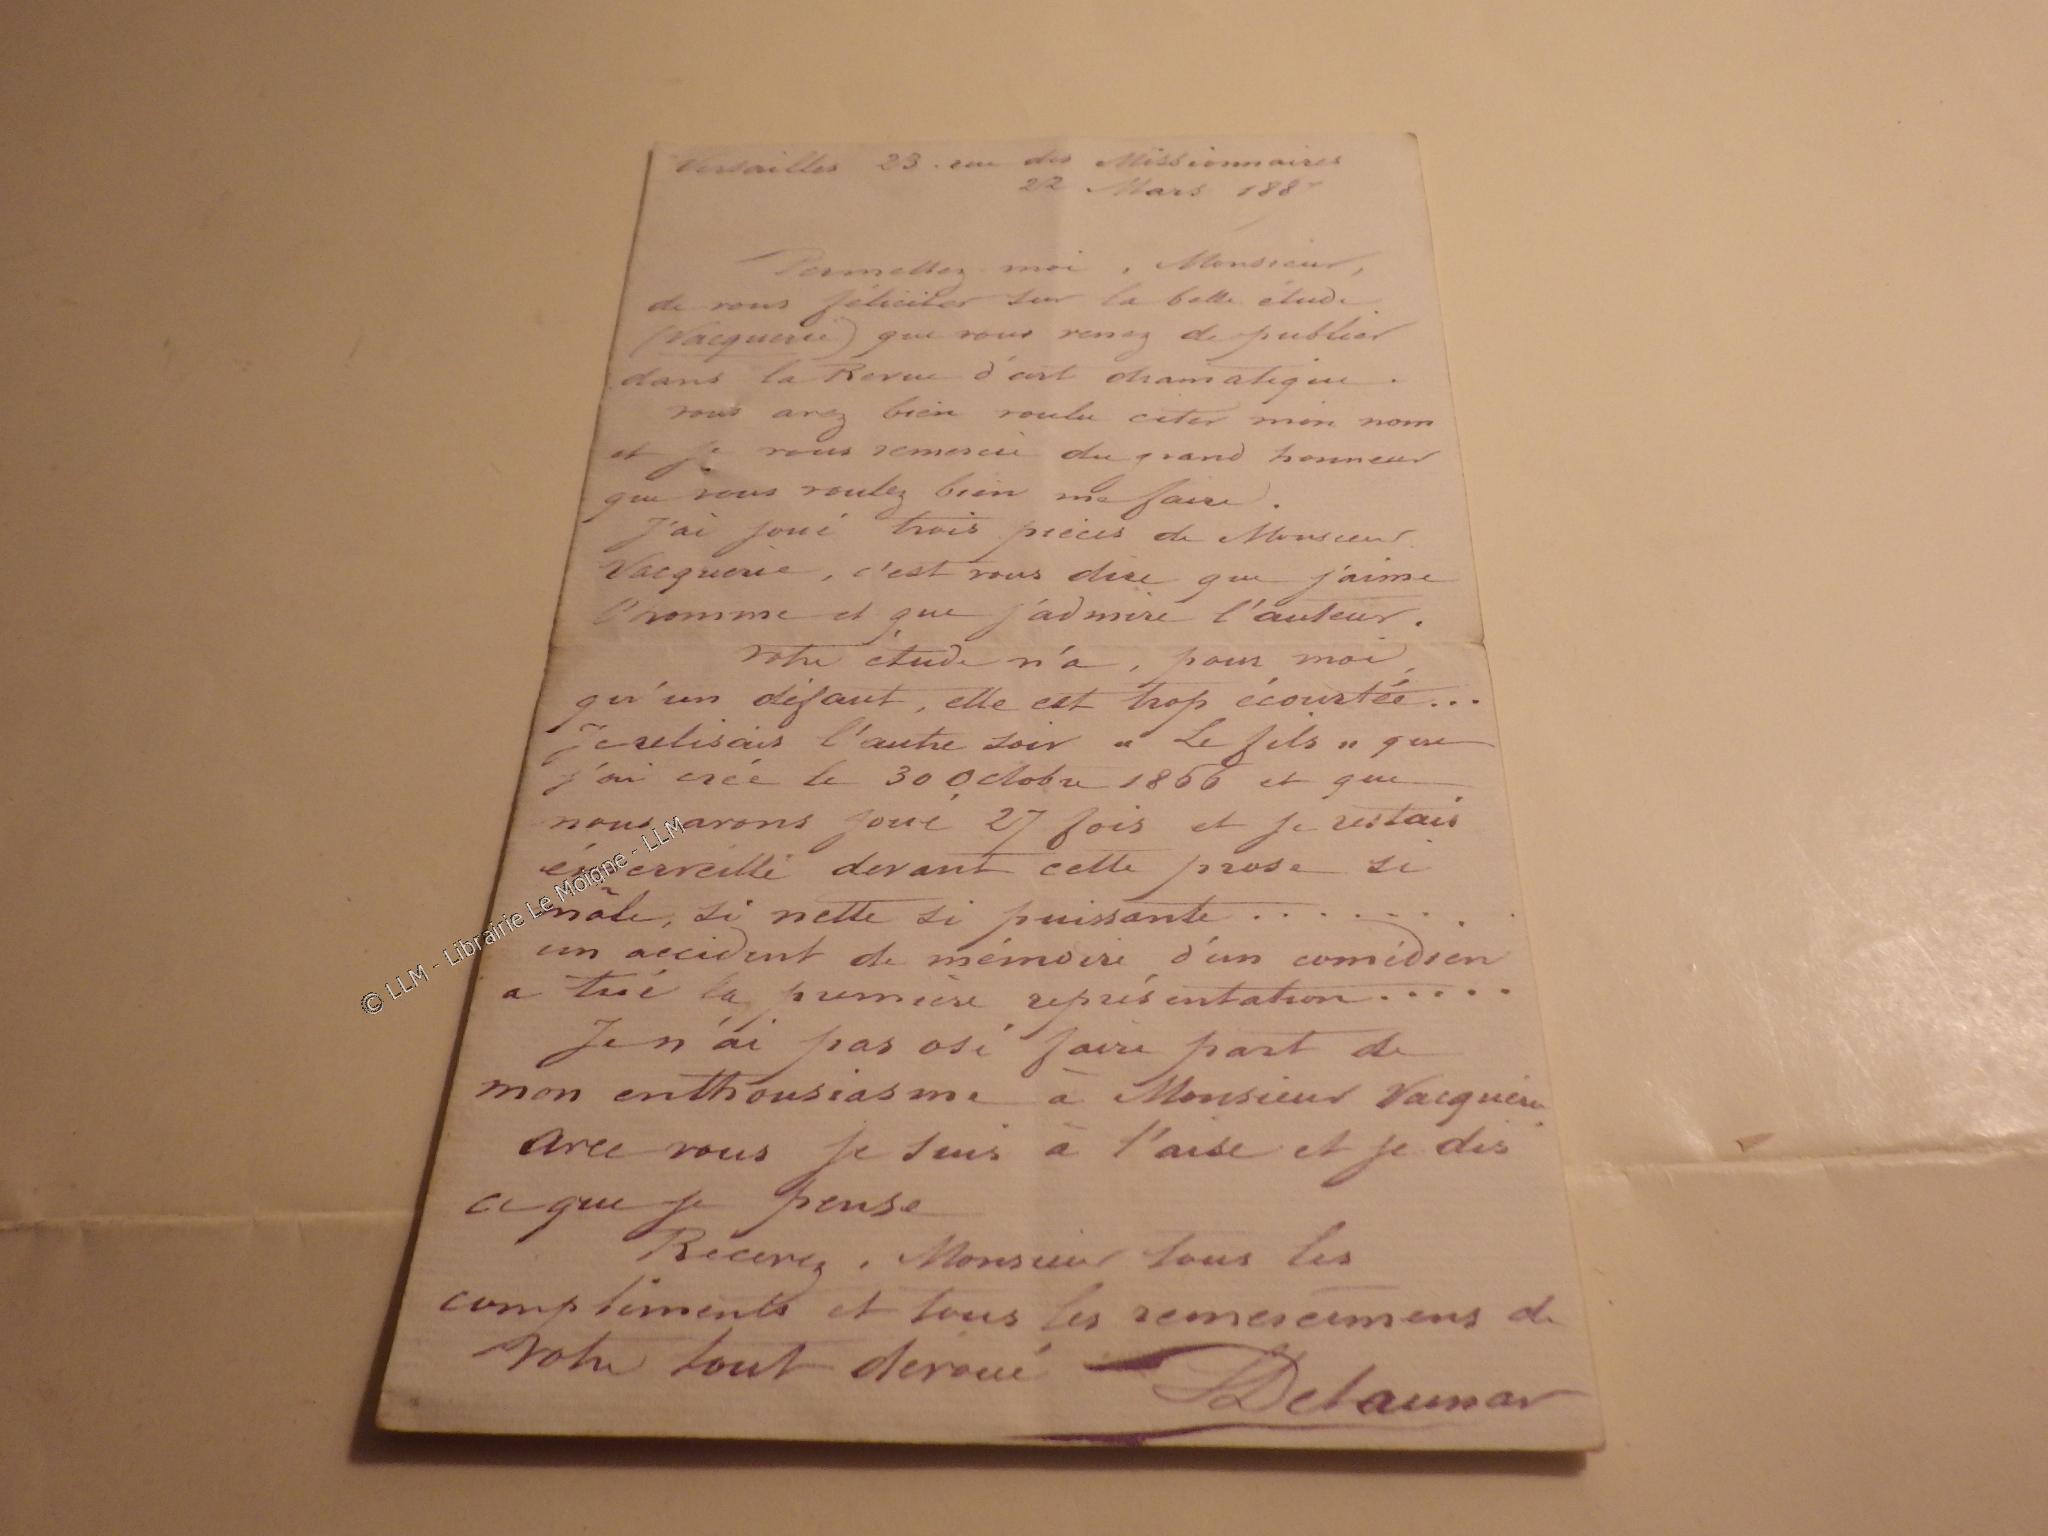 Versailles 23 rue des Missionnaires
22 Mars 188
Permettez moi, Monsieur,
de vous féliciter sur la belle étude
(Vacquerie) que vous venez de publier
dans la Revue d'art dramatique.
vous avez bien voulu citer mon nom
et je vous remercie du grand honneur
que vous voulez bien me faire.
J'ai joué trois pièces de Monsieur
Vacquerie, c'est vous dire que j'aime
l'homme et que j'admire l'auteur.
Votre étude n'a, pour moi,
qu'un défaut, elle est trop écourtée...
Je relisais l'autre soir " Le fils " que
j'ai créé le 30 Octobre 1866 et que
nous avons joué 27 fois et je restais
émerveillé devant cette prose si
mâle, si nette si puissante .......
un accident de mémoire d'un comédien
a tué la première représentation.....
Je n'ai pas osé faire part de
mon enthousiasme à Monsieur Vacquerie
Avec vous je suis à l'aise et je dis
ce que je pense
Recevez, Monsieur tous les
compliments et tous les remerciemens de
Votre tout dévoué
Delaunay
© LLM - Librairie Le Moigne - LLM